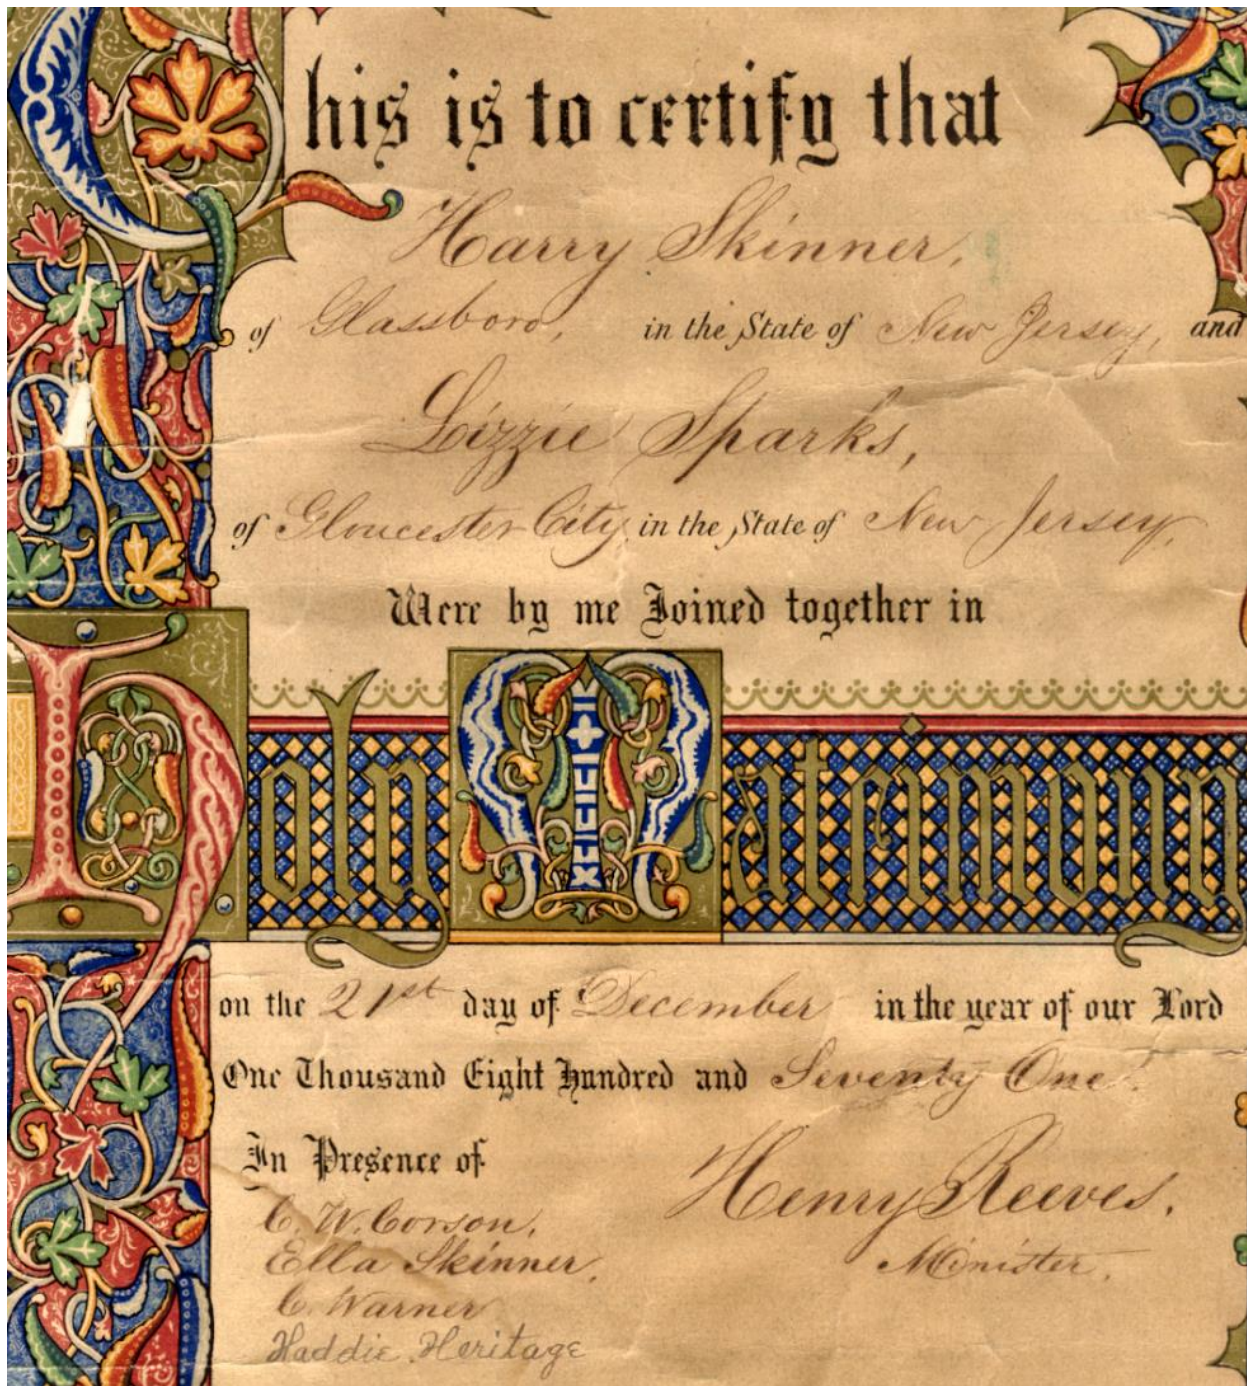 This is to certify that
Harry Skinner,
of Glassboro, in the State of New Jersey, and
Lizzie Sparks,
of Gloucester City, in the State of New Jersey,
Were by me Joined together in
Holy Matrimony
on the 21st day of December in the year of our Lord
One Thousand Eight Hundred and Seventy One.
In Presence of
Henry Reeves.
Minister.
C. W. Corson.
Ella Skinner.
C. Warner
Haddie Heritage